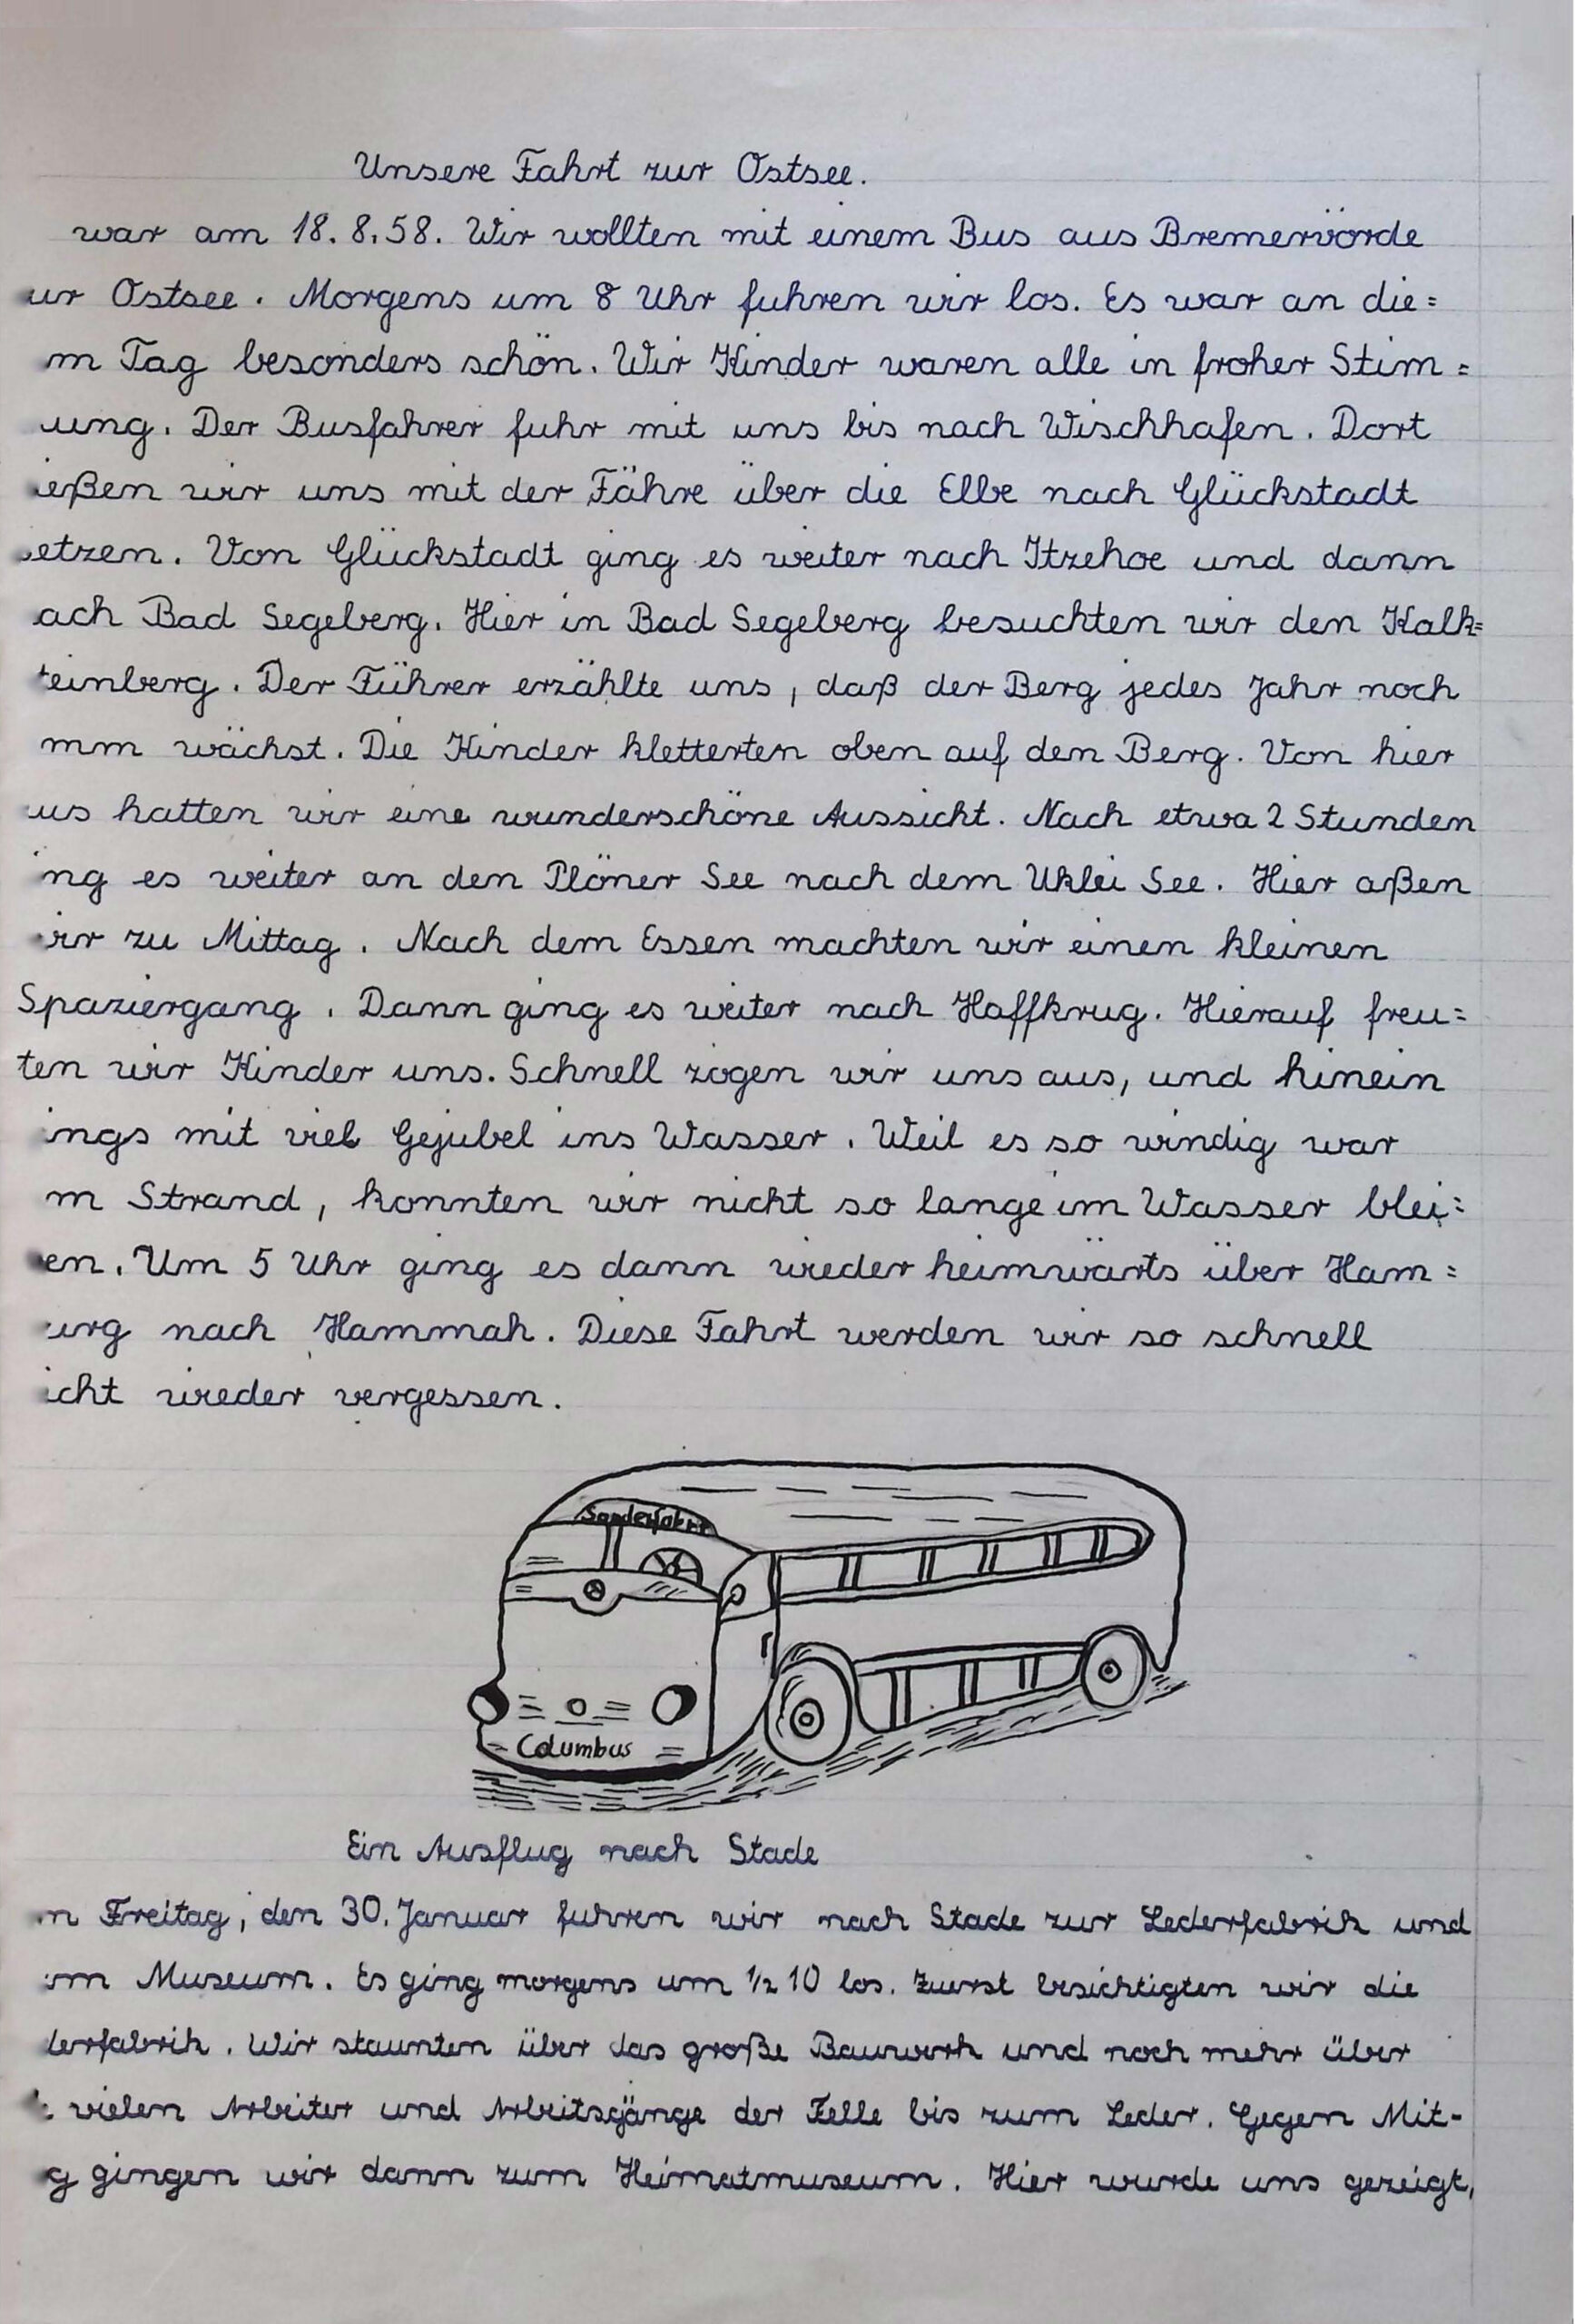 Unsere Fahrt zur Ostsee.
war am 18.8.58. Wir wollten mit einem Bus aus Bremervörde
ur Ostsee. Morgens um 8 Uhr fuhren wir los. Es war an die=
m Tag besonders schön. Wir Kinder waren alle in froher Stim=
ung. Der Busfahrer fuhr mit uns bis nach Wischhafen. Dort
ießen wir uns mit der Fähre über die Elbe nach Glückstadt
etzen. Von Glückstadt ging es weiter nach Itzehoe und dann
ach Bad Segeberg. Hier in Bad Segeberg besuchten wir den Kalk=
teinberg. Der Führer erzählte uns, daß der Berg jedes Jahr noch
mm wächst. Die Kinder kletterten oben auf den Berg. Von hier
us hatten wir eine wunderschöne Aussicht. Nach etwa 2 Stunden
ing es weiter an den Plöner See nach dem Uklei See. Hier aßen
ir zu Mittag. Nach dem Essen machten wir einen kleinen
Spaziergang. Dann ging es weiter nach Haffkrug. Hierauf freu=
ten wir Kinder uns. Schnell zogen wir uns aus, und hinein
ings mit viel Gejubel ins Wasser. Weil es so windig war
m Strand, konnten wir nicht so lange im Wasser blei=
en. Um 5 Uhr ging es dann wieder heimwärts über Ham=
urg nach Hammah. Diese Fahrt werden wir so schnell
icht wieder vergessen.
Sonderfahrt
Columbus
Ein Ausflug nach Stade
m Freitag, den 30. Januar fuhren wir nach Stade zur Lederfabrik und
um Museum. Es ging morgens um ½ 10 los. Zuerst besichtigten wir die
derfabrik. Wir staunten über das große Bauwerk und noch mehr über
vielen Arbeiter und Arbeitsgänge der Felle bis zum Leder. Gegen Mit-
g gingen wir dann zum Heimatmuseum. Hier wurde uns gezeigt,